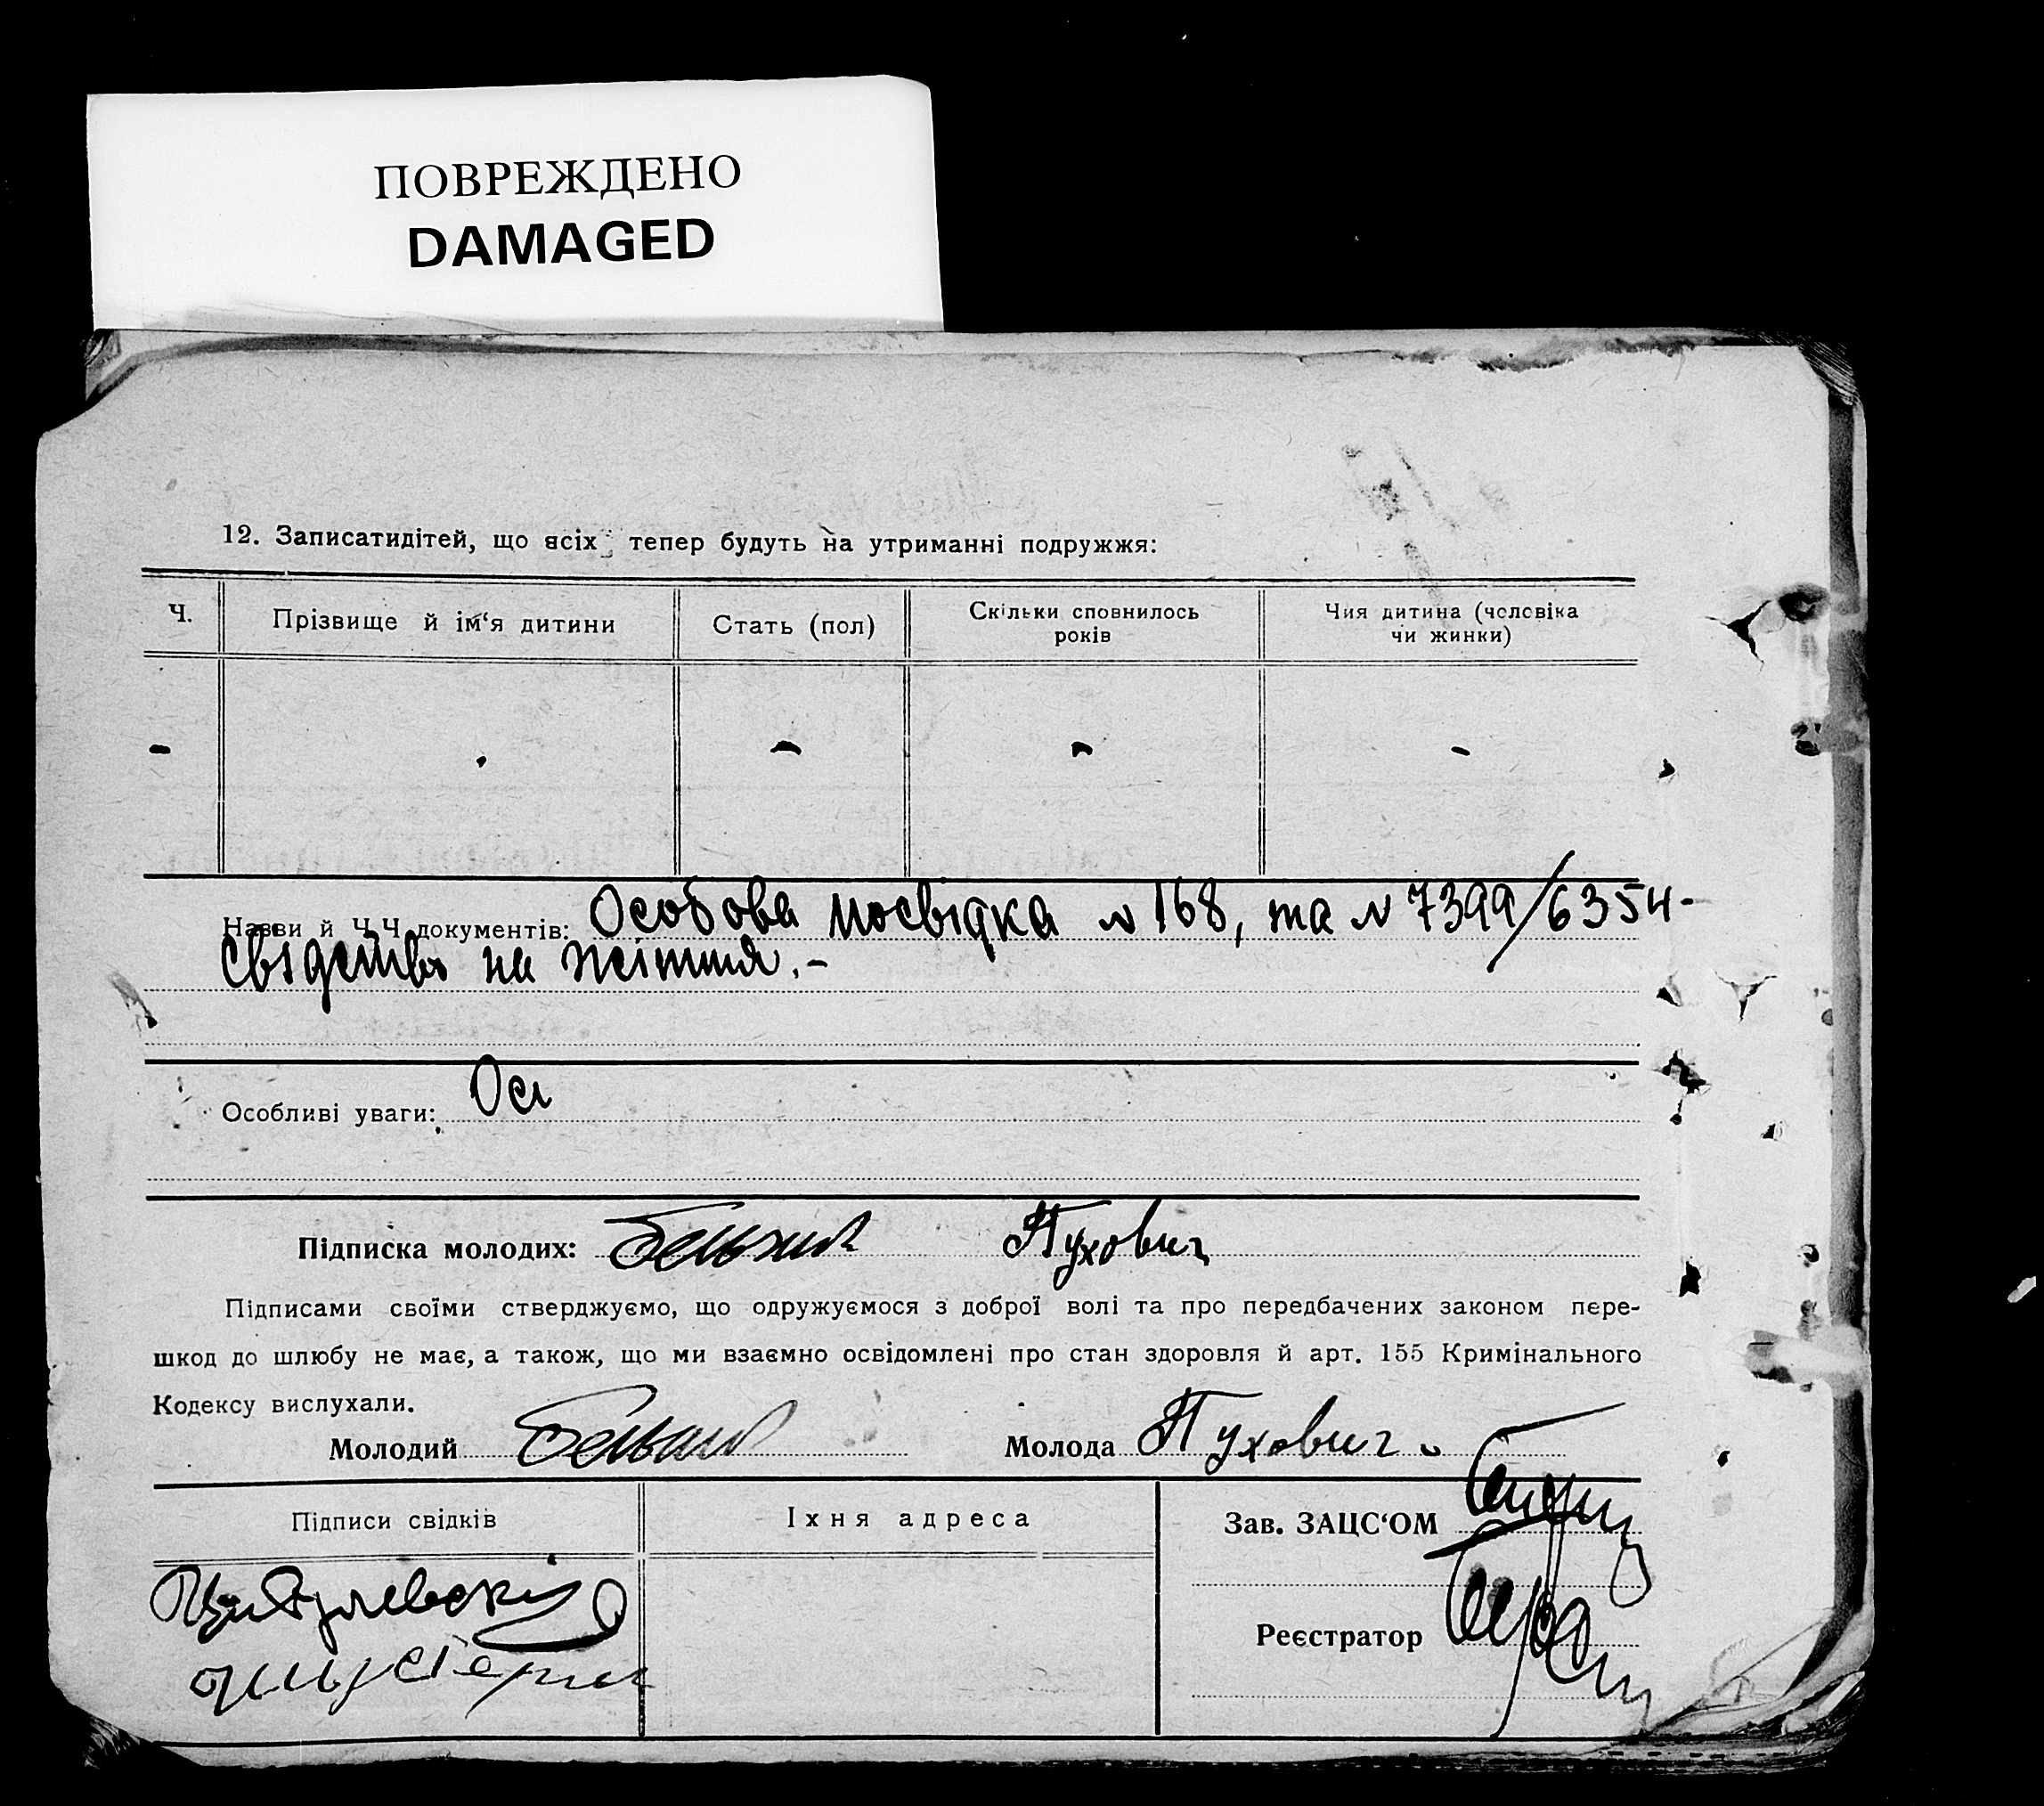 ПОВРЕЖДЕНО
DAMAGED
12. Записатидітей, що всіх тепер будуть на утриманні подружжя:
Ч.
Прізвище й ім‘я дитини
Стать (пол)
Скільки сповнилось
років
Чия дитина (чоловіка
чи жинки)
- . - - -
Назви й Ч.Ч. документів: Особова посвідка № 168, та № 7399/6354-
свідство на життя.-
Особливі уваги: Ос
Підписка молодих: Пухович
Підписами своїми стверджуємо, що одружуємося з доброї волі та про передбачених законом пере-
шкод до шлюбу не має, а також, що ми взаємно освідомлені про стан здоровля й арт. 155 Кримінального
Кодексу вислухали.
Молодий
Молода Пухович
Підписи свідків
Їхня адреса
Зав. ЗАЦС‘ОМ
Реєстратор